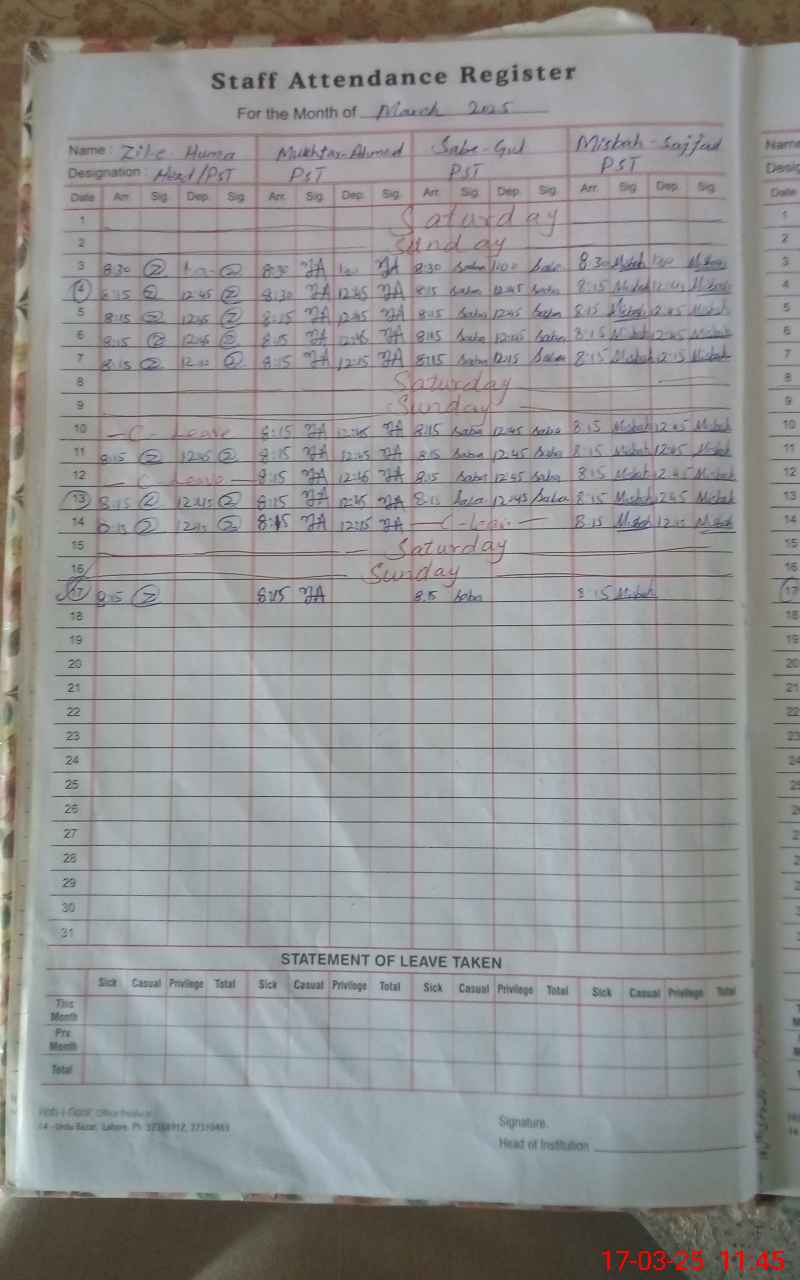 Staff Attendance Register
For the Month of March 2025
Name : Zil-e-Huma Mukhtar Ahmed Saba-Gul Misbah-Sajjad
Designation : Head/PST PST PST PST
Date Arr. Sig. Dep. Sig. Arr. Sig. Dep. Sig. Arr. Sig. Dep. Sig. Arr. Sig. Dep. Sig.
1 Saturday
2 Sunday
3 8:30 8:30 1:00 8:30 Saba 1:00 Saba 8:30 Misbah 1:00 Misbah
4 8:15 12:45 8:30 12:45 8:15 Saba 12:45 Saba 8:15 Misbah 12:45 Misbah
5 8:15 12:45 8:15 12:45 8:15 Saba 12:45 Saba 8:15 Misbah 2:45 Misbah
6 8:15 12:45 8:15 12:45 8:15 Saba 12:45 Saba 8:15 Misbah 12:45 Misbah
7 8:15 8:15 12:15 8:15 Saba 12:15 Saba 8:15 Misbah 12:15 Misbah
8 Saturday
9 Sunday
10 - C - Leave 8:15 12:45 8:15 Saba 12:45 Saba 8:15 Misbah 12:45 Misbah
11 8:15 12:45 8:15 12:45 8:15 Saba 12:45 Saba 8:15 Misbah 12:45 Misbah
12 - C Leave - 8:15 12:45 8:15 Saba 12:45 Saba 8:15 Misbah 12:45 Misbah
13 8:15 12:45 8:15 12:45 8:15 Saba 12:45 Saba 8:15 Misbah 12:45 Misbah
14 8:15 8:15 12:15 8:15 Misbah 12:15 Misbah
15 Saturday
16 Sunday
17 8:15 8:15 8:15 Saba 8:15 Misbah
18
19
20
21
22
23
24
25
26
27
28
29
30
31
STATEMENT OF LEAVE TAKEN
Sick Casual Privilege Total Sick Casual Privilege Total Sick Casual Privilege Total Sick Casual Privilege Total
This Month
Pre Month
Total
Signature.
Head of Institution
14 -Urdu Bazar, Lahore. Ph:
17-03-25 11:45